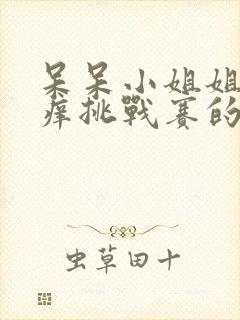 呆呆小姐姐
痒挑戰赛的
虫草田十